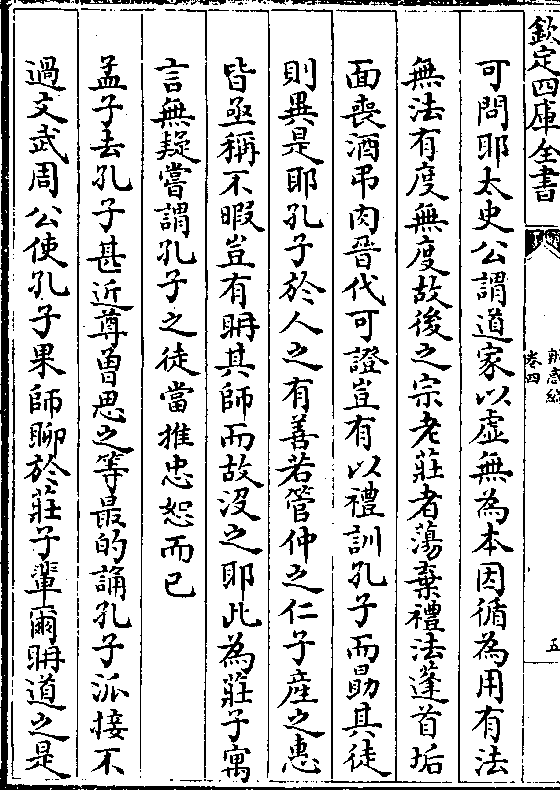 欽定四庫全書
卷四
五
可問耶太史公謂道家以虛無為本因循為用有法
無法有度無度故後之宗老莊者蕩棄禮法蓬首垢
面喪酒弔肉晉代可證豈有以禮訓孔子而勗其徒
則異是耶孔子於人之有善若管仲之仁子產之惠
皆亟稱不暇豈有耼其師而故沒之耶此為莊子寓
言無疑嘗謂孔子之徒當推忠恕而已
孟子去孔子甚近尊曾思之等最的誦孔子派接不
過文武周公使孔子果師聊於莊子輩爾耼道之是